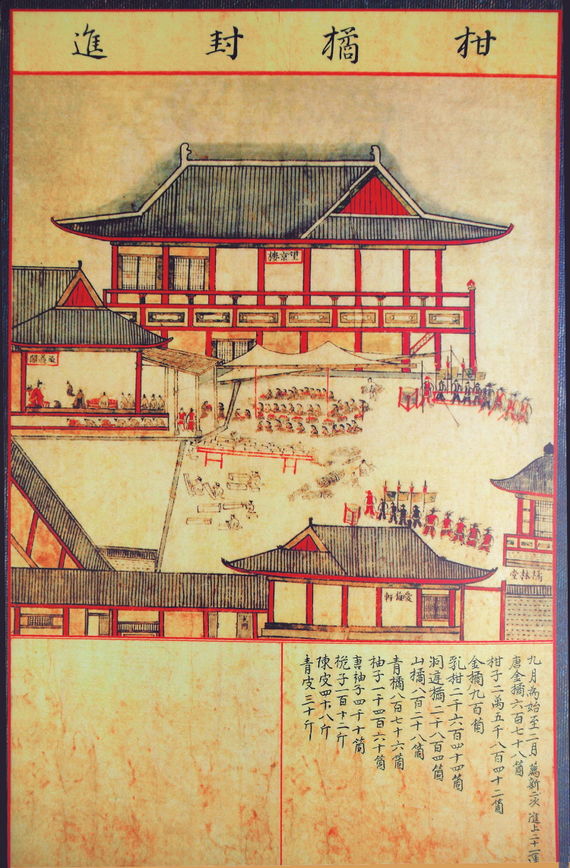 柑橘封進
望京樓
橘林堂
愛梅軒
九月爲始至二月 薦新二次 進上二十一運
唐金橘六百七十八箇
柑子二萬五千八百四十二箇
金橘九百箇
乳柑二千六百四十四箇
洞庭橘二千八百四箇
山橘八百二十八箇
青橘八百七十六箇
柚子一千四百六十箇
唐柚子四千十箇
梔子一百十二斤
陳皮四十八斤
青皮三十斤